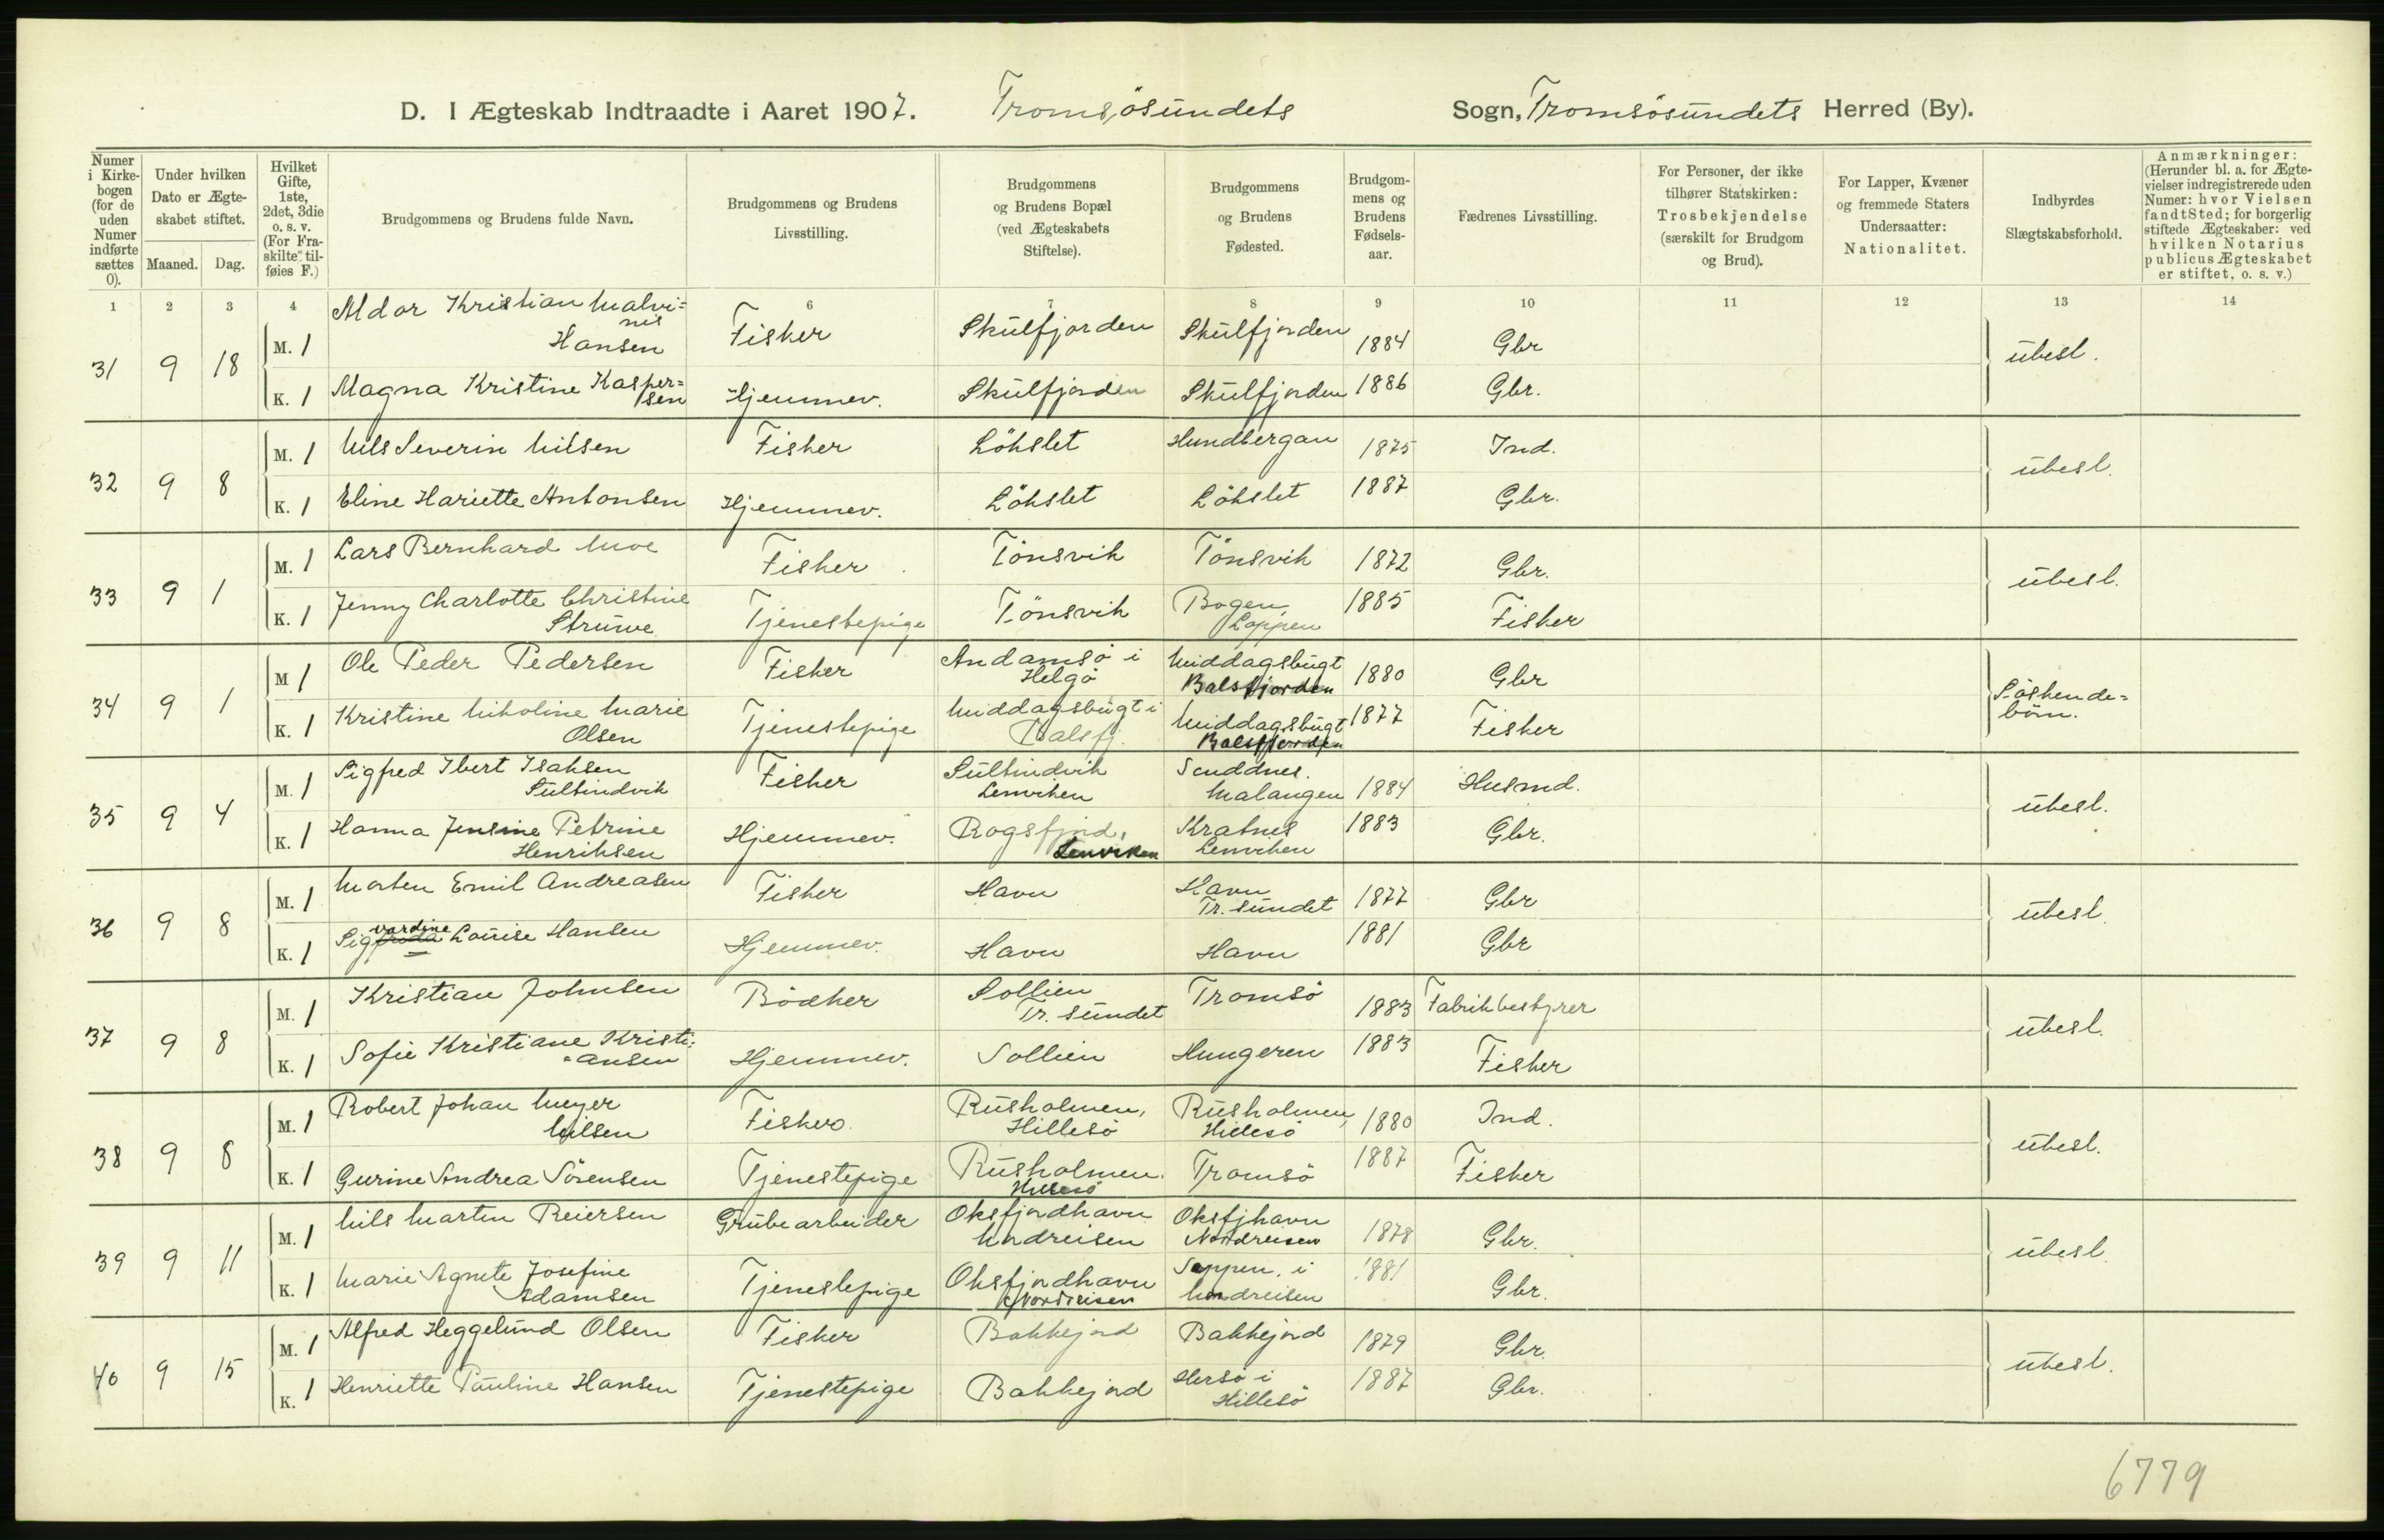 D. I Ægteskab Indtraadte i Aaret 1907. Tromsøsundets Sogn, Tromsøsundets Herred (By).
Numer i Kirkebogen (for de uden Numer indførte sættes 0).
Under hvilken Dato er Ægteskabet stiftet.
Maaned. Dag.
Hvilket Gifte, 1ste, 2det, 3die o. s. v. (For Fraskilte tilføies F.)
Brudgommens og Brudens fulde Navn.
Brudgommens og Brudens Livsstilling.
Brudgommens og Brudens Bopæl (ved Ægteskabets Stiftelse).
Brudgommens og Brudens Fødested.
Brudgommens og Brudens Fødselsaar.
Fædrenes Livsstilling.
For Personer, der ikke tilhører Statskirken: Trosbekjendelse (særskilt for Brudgom og Brud).
For Lapper, Kvæner og fremmede Staters Undersaatter: Nationalitet.
Indbyrdes Slægtskabsforhold.
Anmærkninger: (Herunder bl. a. for Ægtevielser indregistrerede uden Numer: hvor Vielsen fandt Sted; for borgerlig stiftede Ægteskaber: ved hvilken Notarius publicus Ægteskabet er stiftet, o. s. v.)
1 2 3 4 6 7 8 9 10 11 12 13 14
31 9 18 M. 1 Aldor Kristian Malvi= Hansen Fisker Skulfjorden Skulfjorden 1884 Gbr ubesl.
K. 1 Magna Kristine Kasper=sen Hjemmev. Skulfjorden Skulfjorden 1886 Gbr.
32 9 8 M. 1 Nils Severin Nilsen Fisker Lökslet Hundbergan 1875 Ind. ubesl.
K. 1 Eline Hariette Antonsen Hjemmev. Lökslet Lökslet 1887 Gbr.
33 9 1 M. 1 Lars Bernhard Moe Fisker Tönsvik Tönsvik 1872 Gbr. ubesl.
K. 1 Jenny Charlotte Christine Struwe Tjenestepige Tönsvik Bogen, Loppen 1885 Fisker
34 9 1 M 1 Ole Peder Pedersen Fisker Andamsö i Helgö Middagsbugt Balsfjorden 1880 Gbr Söskende=börn.
K. 1 Kristine Nikoline Marie Olsen Tjenestepige Middagsbugt i Balsfj. Middagsbugt Balsfjorden 1877 Fisker
35 9 4 M. 1 Sigfred Ibert Isaksen Sultindvik Fisker Sultindvik Lenviken Malangen 1884 Husmd. ubesl.
K. 1 Hanna Jensine Petrine Henriksen Hjemmev. Rogsfjord, Lenviken Kratnes Lenviken 1883 Gbr.
36 9 8 M. 1 Morten Emil Andreasen Fisker Havn Havn Tr. sundet 1877 Gbr ubesl.
K. 1 Sigvardine Louise Hansen Hjemmev. Havn Havn 1881 Gbr
37 9 8 M. 1 Kristian Johnsen Bödker Sollien Tr. sundet Tromsö 1883 Fabrikbestyrer ubesl.
K. 1 Sofie Kristiane Kristi=ansen Hjemmev. Sollien Hungeren 1883 Fisker
38 9 8 M. 1 Robert Johan Meyer Nilsen Fisker Rusholmen, Hillesö Rusholmen, Hillesö 1880 Ind. ubesl.
K. 1 Gurine Andrea Sörensen Tjenestepige Rusholmen. Hillesö Tromsö 1887 Fisker
39 9 11 M. 1 Nils Martin Reiersen Grubearbeider Oksfjordhavn Nordreisen Oksfjhavn Nordreisen 1878 Gbr. ubesl.
K. 1 Marie Agnete Josefine Adamsen Tjenestepige Oksfjordhavn Nordreisen Sappen i Nordreisen 1881 Gbr.
40 9 15 M. 1 Alfred Heggelund Olsen Fisker Bakkejord Bakkejord 1879 Gbr. ubesl.
K. 1 Henriette Pauline Hansen Tjenestepige Bakkejord Hersö i Hillesö 1887 Gbr.
6779